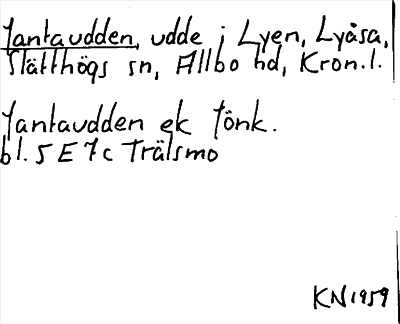 Jantaudden, udde i Lyen, Lyåsa,
Slätthögs sn, Allbo hd, Kron.l.
Jantaudden ek Jönk.
bl. 5 E 7 c Trälsmo
KN 1959